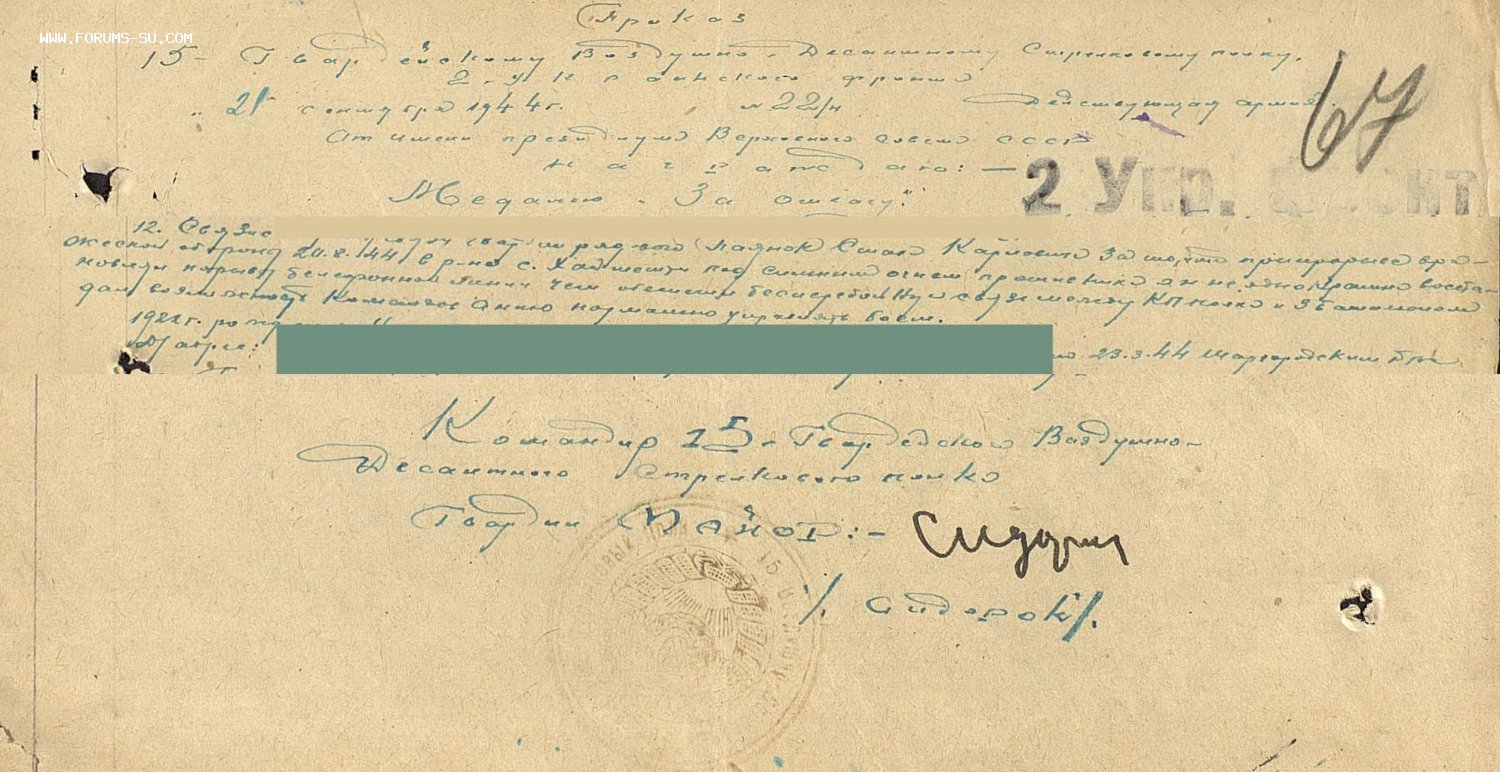 WWW.FORUMS-SU.COM
Приказ
15 - Гвардейскому Воздушно-Десантному Стрелковому полку,
2 - Украинского фронта
" 21 " сентября 1944 г. № 22/н Действующая армия.
67
От имени президиума Верховного Совета СССР
награждаю: —
Медалью „За отвагу":
2 УКР. ФРОНТ
12. Связис гвардии рядового Стаха Карповича За то, что при прорыве вра-
жеской обороны 20.8.44 в р-не с. под сильным огнем противника он неоднократно восста-
новлял порывы телефонной линии чем обеспечил бесперебойную связь между КП полка и 3 батальоном
дал возможность Командованию нормально управлять боем.
1922 г.
23.3.44 Шаргородским
Командир 15 - Гвардейского Воздушно-
Десантного Стрелкового полка
Гвардии МАЙОР: - Сидорок
/. Сидорок /.